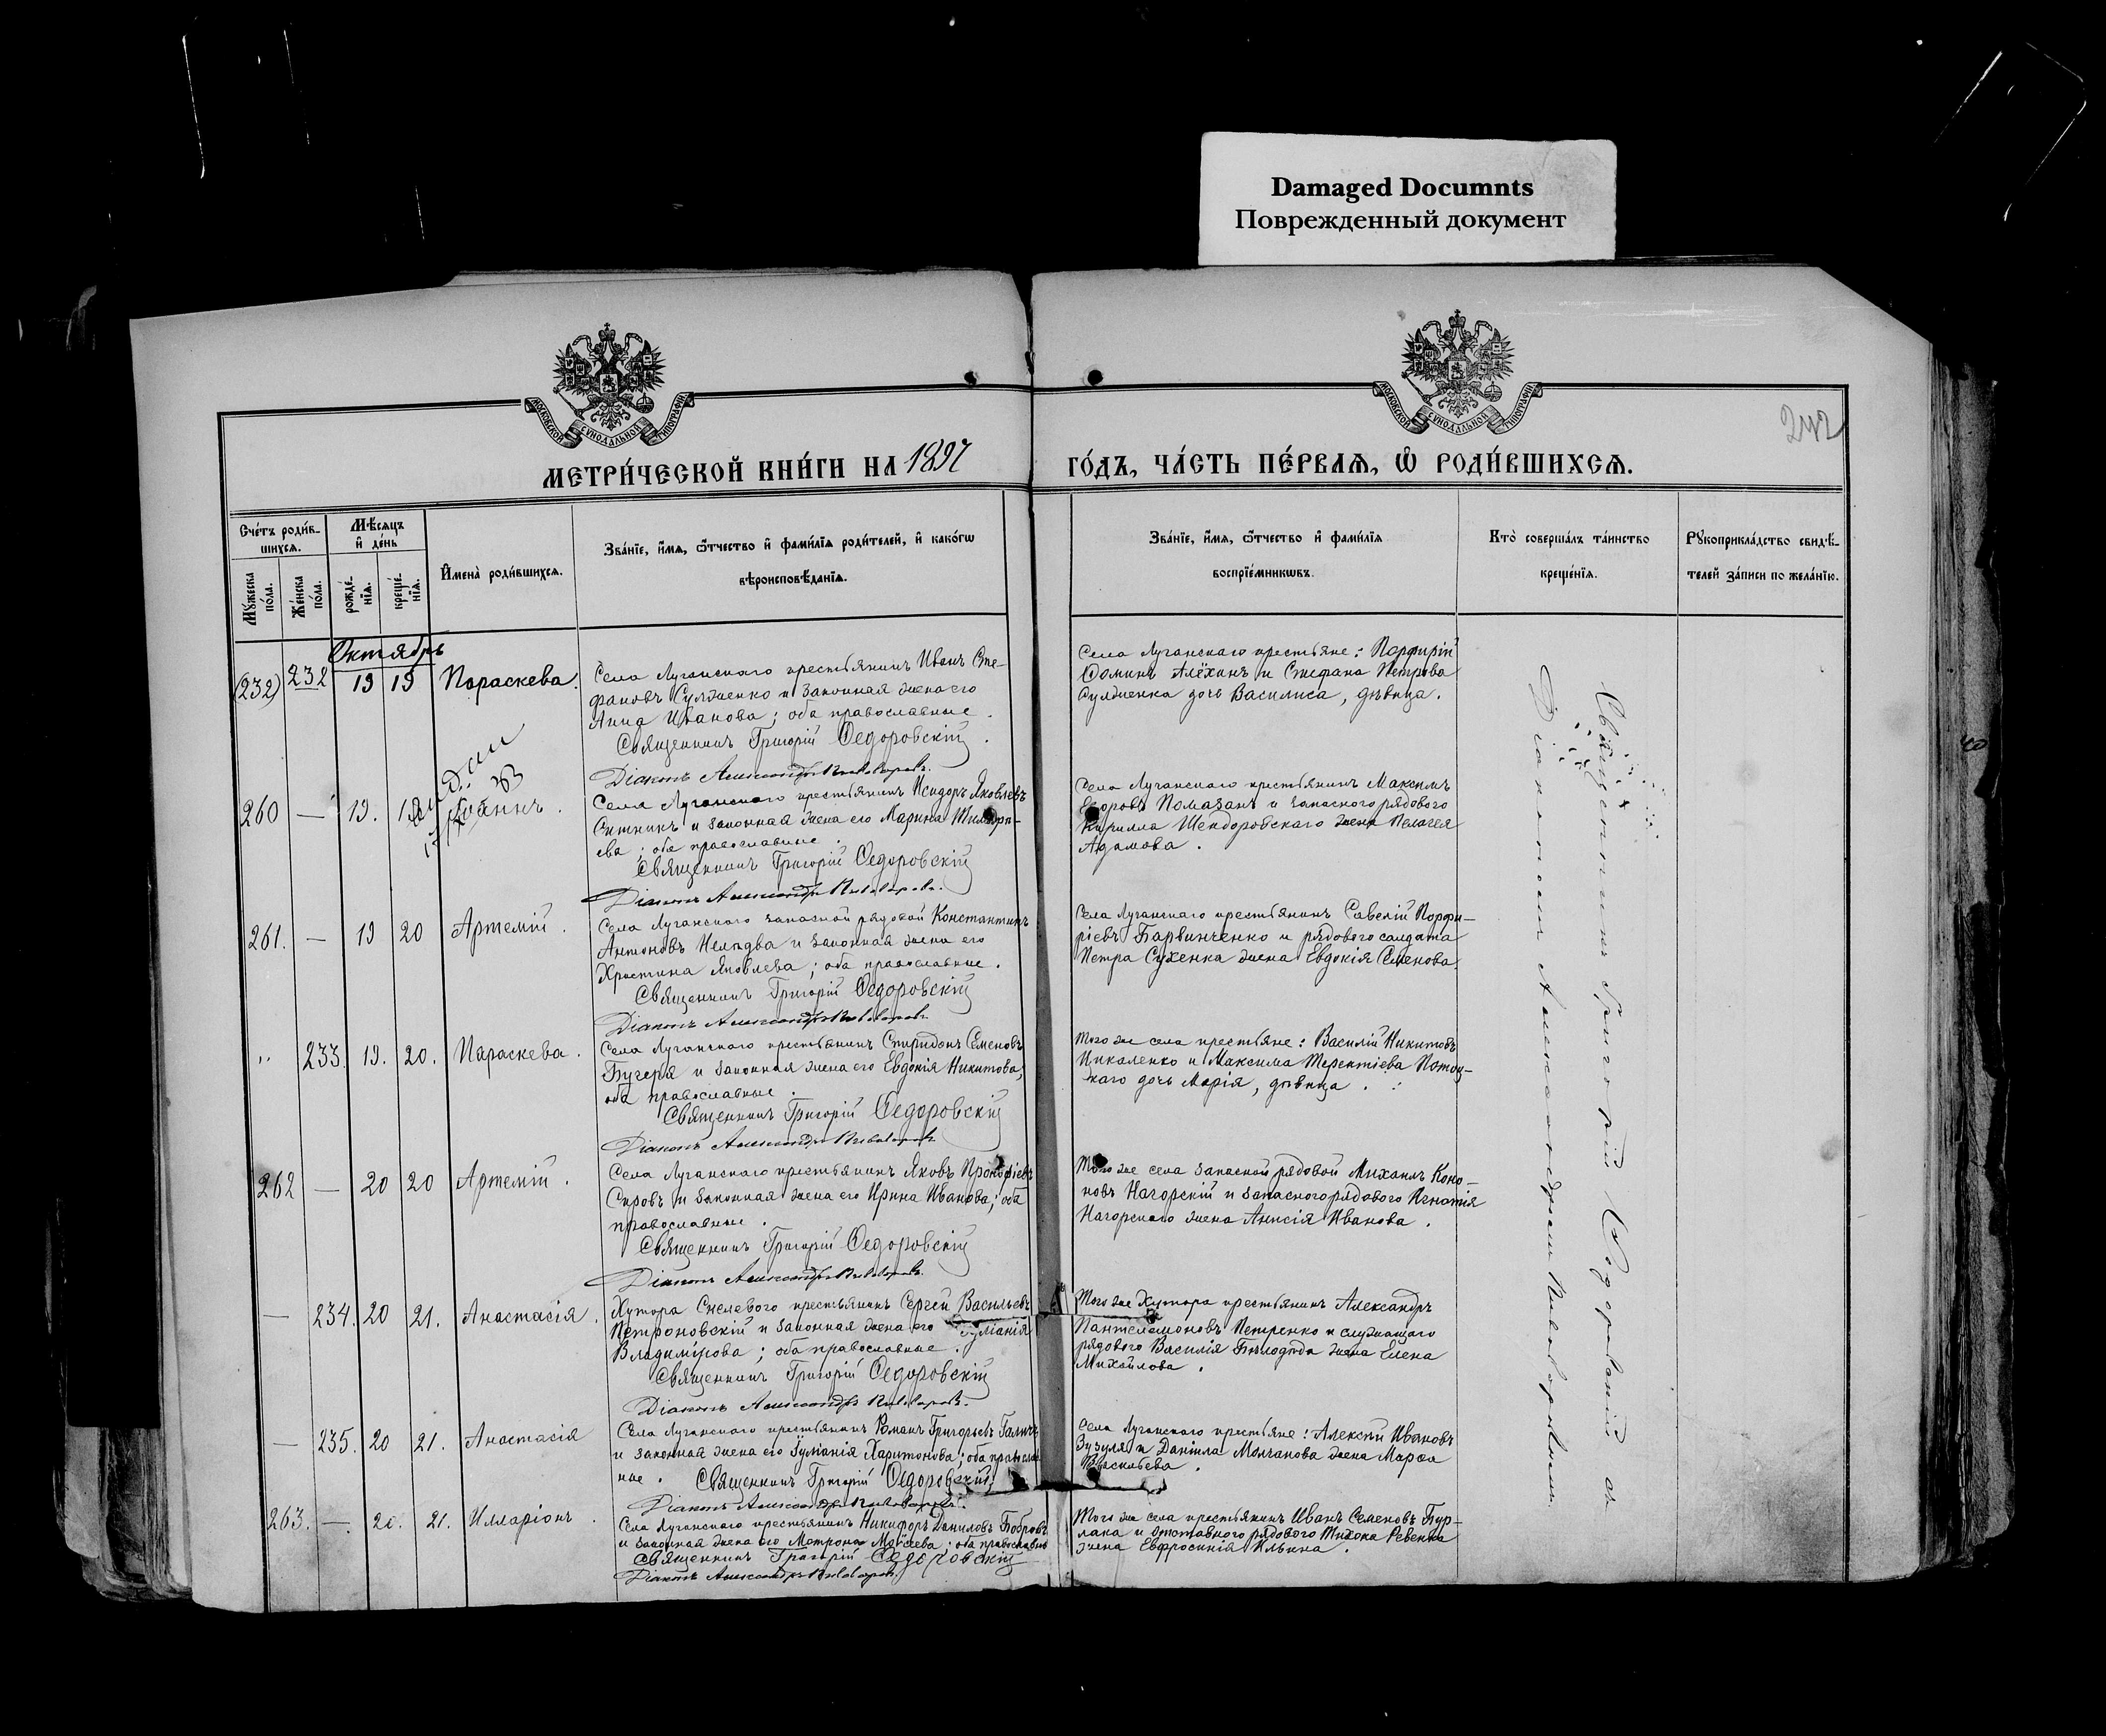 Damaged Documnts
Поврежденный документ
МОСКОВСКОЙ СѴНОДАЛЬНОЙ ТИПОГРАФІИ
МОСКОВСКОЙ СѴНОДАЛЬНОЙ ТИПОГРАФІИ
242
МЕТРИ́ЧЕСКОЙ КНИ́ГИ НА 1897 ГО́ДЪ, ЧА́СТЬ ПЕ́РВАЯ, Ѡ РОДИ́ВШИХСЯ.
Сче́тъ роди́в-
шихся.
Мѣ́сяцъ
и де́нь
Му́жеска
по́ла.
Же́нска
по́ла.
рожде́-
нїя.
креще́-
нїя.
Имена̀ роди́вшихся.
Зва́нїе, и́мя, ѻ҆́тчество и фами́лїя роди́телей, и како́гѡ
вѣроисповѣ́данїя.
Зва́нїе, и́мя, ѻ҆́тчество и фами́лїя
воспрїе́мникѡвъ.
Кто̀ соверша́лъ та́инство
креще́нїя.
Рꙋкоприкла́дство свидѣ́-
телей за́писи по жела́нїю.
Октябрь
(232) 232 19 19 Параскева.
Села Луганскаго крестьянинъ Иванъ Сте-
фановъ Сулженко и законная жена его
Анна Иванова; оба православные.
Священникъ Григорій Ѳедоровскій
Діаконъ Александръ Пивоваровъ.
Села Луганскаго крестьяне: Порфирій
Ѳоминъ Алёхинъ и Стефана Петрова
Сулженка дочь Василиса, дѣвица.
260 — 19. Іоаннъ.
Села Луганскаго крестьянинъ Исидоръ Яковлевъ
Ситникъ и законная жена его Марина
ева; оба православные.
Священникъ Григорій Ѳедоровскій
Діаконъ Александръ Пивоваровъ.
Села Луганскаго крестьянинъ Максимъ
Егоровъ Помазанъ и запаснаго рядового
Кирилла Шендоровскаго жена Пелагея
Адамова.
261. — 19 20 Артемій.
Села Луганскаго запасной рядовой Константинъ
Антоновъ и законная жена его
Христина Яковлева; оба православные.
Священникъ Григорій Ѳедоровскій
Діаконъ Александръ Пивоваровъ.
Села Луганскаго крестьянинъ Савелій Порфи-
ріевъ Барвинченко и рядового солдата
Петра Сухенка жена Евдокія Семенова.
„ 233. 19. 20. Параскева.
Села Луганскаго крестьянинъ Спиридонъ Семеновъ
Бугеря и законная жена его Евдокія Никитова,
оба православные.
Священникъ Григорій Ѳедоровскій
Діаконъ Александръ Пивоваровъ
Того же села крестьяне: Василій Никитовъ
Николенко и Максима Терентіева Потоц-
каго дочь Марія, дѣвица.
262 — 20 20 Артемій.
Села Луганскаго крестьянинъ Яковъ Прокофіевъ
и законная жена его Ирина Иванова; оба
православные.
Священникъ Григорій Ѳедоровскій
Діаконъ Александръ Пивоваровъ.
Того же села запасной рядовой Михаилъ Коно-
новъ Нагорскій и запаснаго рядового Игнатія
Нагорскаго жена Анисія Иванова.
— 234. 20 21. Анастасія.
Хутора крестьянинъ Сергѣй Васильевъ
Петроновскій и законная жена его Іуліанія
Владимірова; оба православные.
Священникъ Григорій Ѳедоровскій
Діаконъ Александръ Пивоваровъ.
Того же Хутора крестьянинъ Александръ
Пантелеимоновъ Петренко и служащаго
рядового Василія Бѣлодѣда жена Елена
Михайлова.
— 235. 20 21. Анастасія
Села Луганскаго крестьянинъ Романъ Григорьевъ
и законная жена его Іуліанія Харитонова; оба православ-
ные. Священникъ Григорій Ѳедоровскій
Діаконъ Александръ Пивоваровъ.
Села Луганскаго крестьяне: Алексѣй Ивановъ
Зузуля и Даніила Молчанова жена Марѳа
263. — 20. 21. Илларіонъ.
Села Луганскаго крестьянинъ Никифоръ Даниловъ Бобровъ
и законная жена его Матрона Моѵсеева; оба православные
Священникъ Григорій Ѳедоровскій
Діаконъ Александръ Пивоваровъ.
Того же села крестьянинъ Иванъ Семеновъ Бур-
лака и отставного рядового Тихона Ревенка
жена Евфросинія Ильина.
Священникъ Григорій Ѳедоровскій съ
Діакономъ Александромъ Пивоваровымъ.